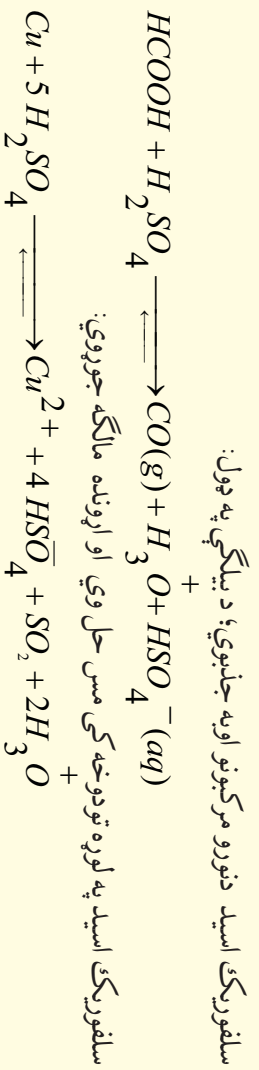 سلفوریک اسید دنورو مرکبونو اوبه جذبوي؛ د بیلگې په ډول:
HCOOH + H₂SO₄ ⟶ CO(g) + H₃O⁺ + HSO₄⁻(aq)
سلفوریک اسید په لوړه تودوخه کې مس حل وي او اړونده مالگه جوړوي:
Cu + 5H₂SO₄ ⟶ Cu²⁺ + 4HSO₄⁻ + SO₂ + 2H₃O⁺